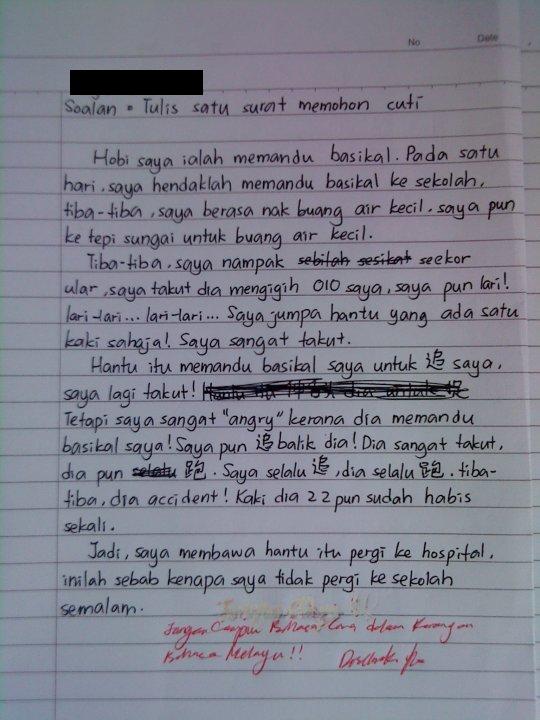 No
Date
Soalan = Tulis satu surat memohon cuti
Hobi saya ialah memandu basikal. Pada satu
hari, saya hendaklah memandu basikal ke sekolah,
tiba-tiba, saya berasa nak buang air kecil. saya pun
ke tepi sungai untuk buang air kecil.
Tiba-tiba, saya nampak sebilah sesikat seekor
ular, saya takut dia mengigih 010 saya, saya pun lari!
lari-lari... lari-lari... Saya jumpa hantu yang ada satu
kaki sahaja! Saya sangat takut.
Hantu itu memandu basikal saya untuk 追 saya,
saya lagi takut!
Tetapi saya sangat "angry" kerana dia memandu
basikal saya! Saya pun 追 balik dia! Dia sangat takut,
dia pun selalu 跑. Saya selalu 追, dia selalu 跑. tiba-
tiba, dia accident! Kaki dia 2 2 pun sudah habis
sekali.
Jadi, saya membawa hantu itu pergi ke hospital,
inilah sebab kenapa saya tidak pergi ke sekolah
semalam.
Jangan Campur Bahasa Cina dalam Karangan
Bahasa Melayu!!